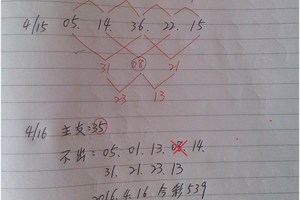 4/15 05. 14. 36. 22. 15
31 08 21
23 13
4/16 主支=35
不出=05. 01. 13. 08. 14.
31. 21. 23. 13
2016.4.16.今彩539